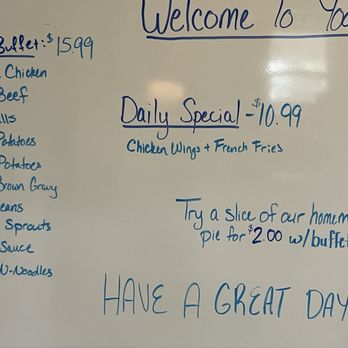 Welcome To
Buffet: $15.99
Chicken
Beef
Potatoes
Potatoes
Brown Gravy
Sprouts
Sauce
N-Noodles
Daily Special - $10.99
Chicken Wings + French Fries
Try a slice of our
pie for $2.00 w/buffet
HAVE A GREAT DAY